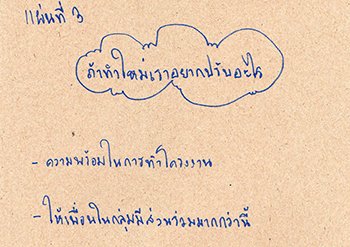 แผ่นที่ 3
ถ้าทำใหม่เราอยากปรับอะไร
- ความพร้อมในการทำโครงงาน
- ให้เพื่อนในกลุ่มมีส่วนร่วมมากกว่านี้